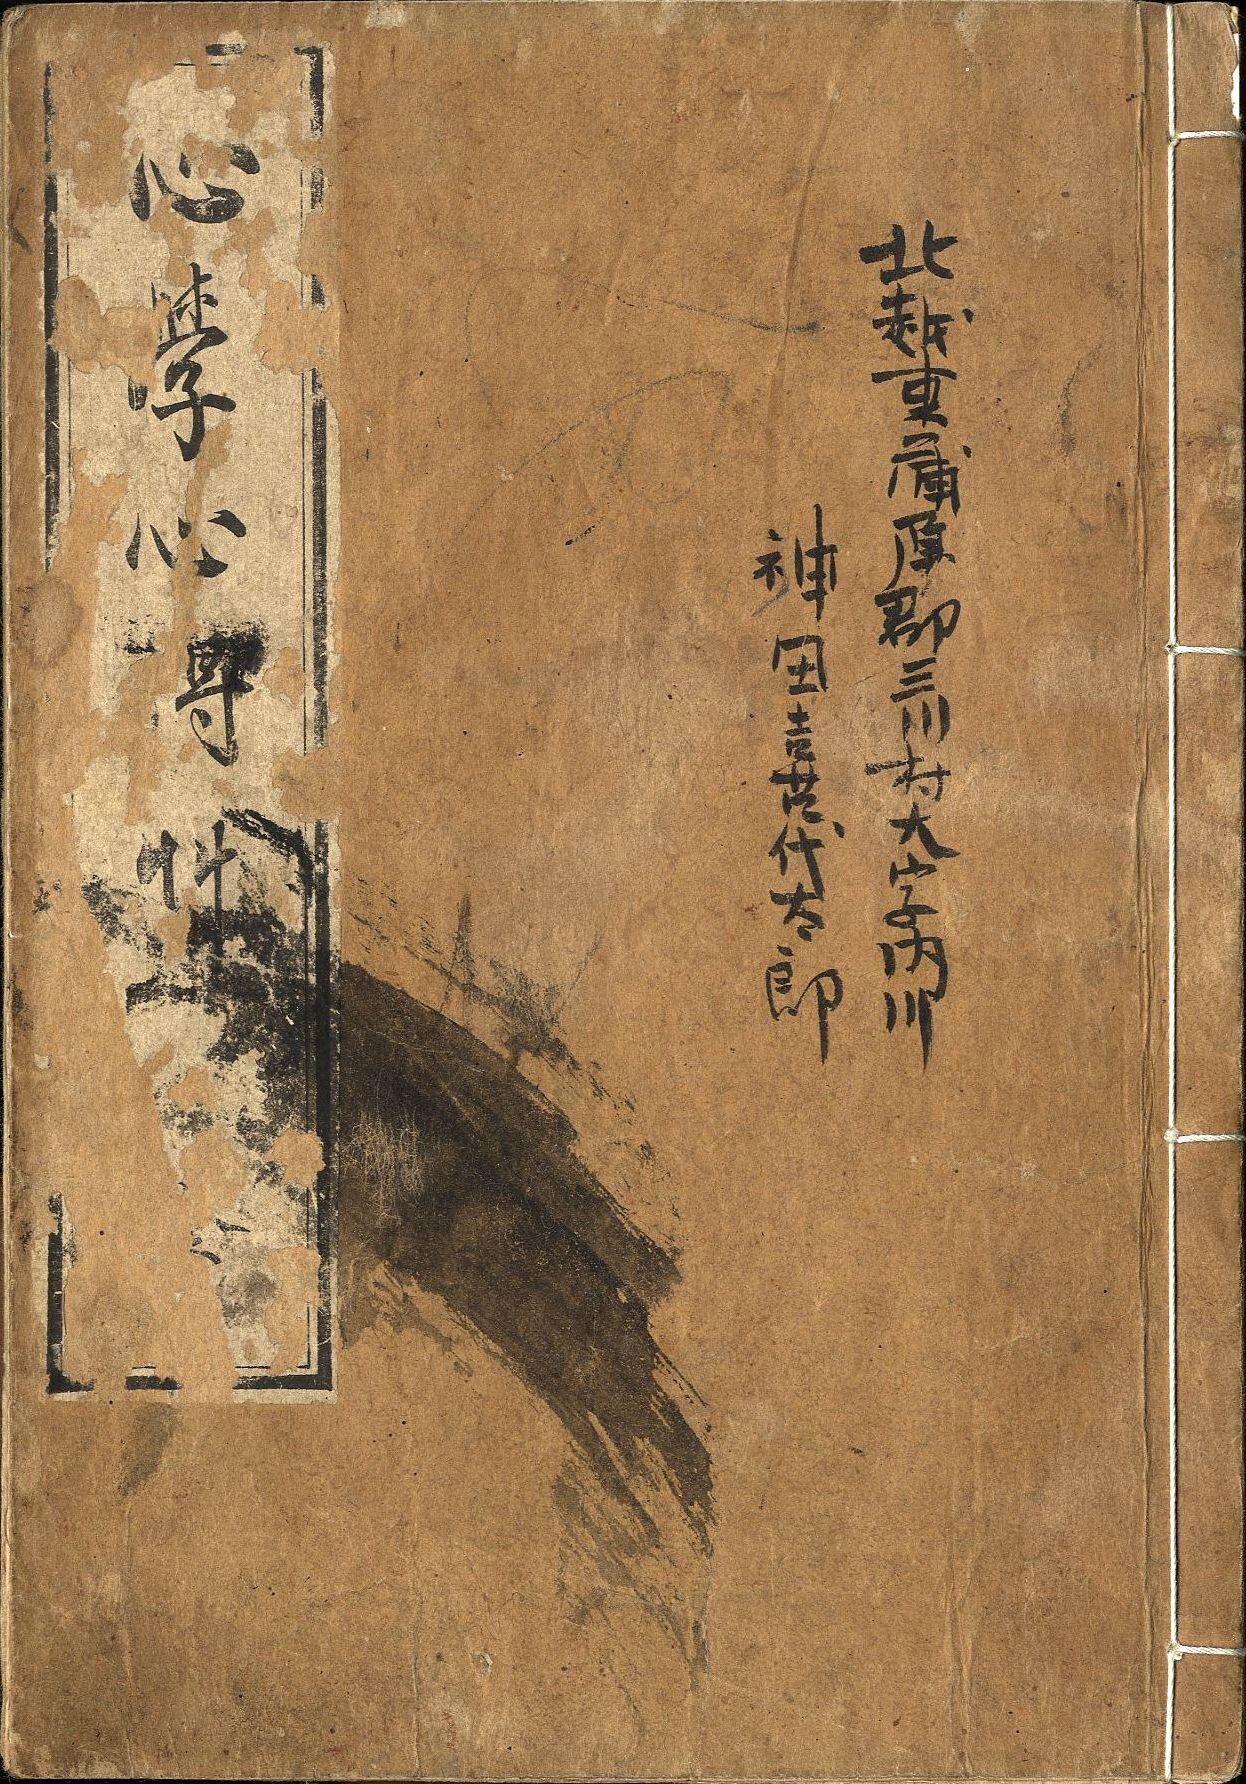 北越東蒲原郡三川村大字内川
神田喜代太郎
心學心得艸